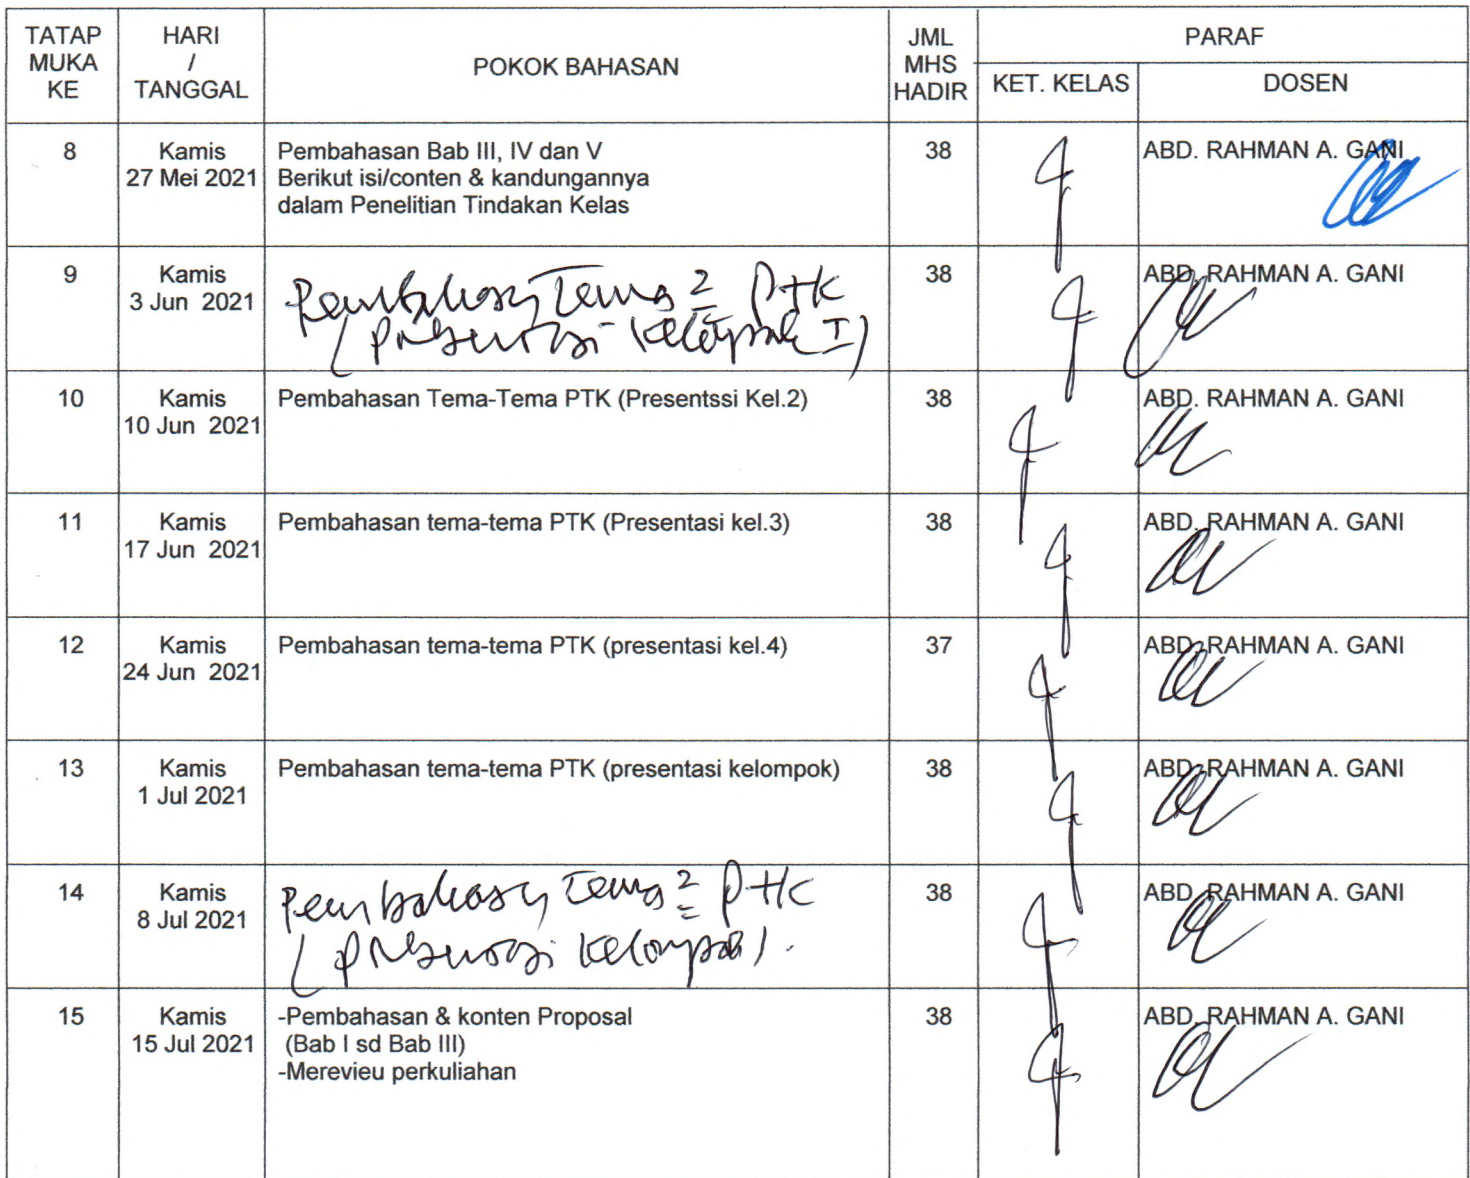 TATAP MUKA KE
HARI / TANGGAL
POKOK BAHASAN
JML MHS HADIR
PARAF
KET. KELAS
DOSEN
8
Kamis
27 Mei 2021
Pembahasan Bab III, IV dan V
Berikut isi/conten & kandungannya
dalam Penelitian Tindakan Kelas
38
ABD. RAHMAN A. GANI
9
Kamis
3 Jun 2021
Pembahasan Tema2 PTK
(Presentasi Kelompok I)
38
ABD. RAHMAN A. GANI
10
Kamis
10 Jun 2021
Pembahasan Tema-Tema PTK (Presentssi Kel.2)
38
ABD. RAHMAN A. GANI
11
Kamis
17 Jun 2021
Pembahasan tema-tema PTK (Presentasi kel.3)
38
ABD. RAHMAN A. GANI
12
Kamis
24 Jun 2021
Pembahasan tema-tema PTK (presentasi kel.4)
37
ABD. RAHMAN A. GANI
13
Kamis
1 Jul 2021
Pembahasan tema-tema PTK (presentasi kelompok)
38
ABD. RAHMAN A. GANI
14
Kamis
8 Jul 2021
Pembahasan Tema2 PTK
(Presentasi Kelompok).
38
ABD. RAHMAN A. GANI
15
Kamis
15 Jul 2021
-Pembahasan & konten Proposal
(Bab I sd Bab III)
-Merevieu perkuliahan
38
ABD. RAHMAN A. GANI